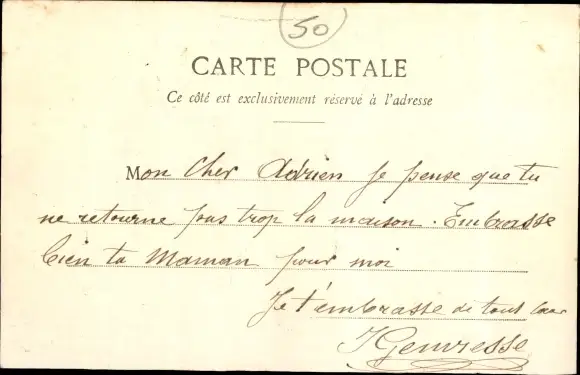 50
CARTE POSTALE
Ce côté est exclusivement réservé à l'adresse
Mon Cher Adrien je pense que tu
ne retourne pas trop la maison. Embrasse
bien ta Maman pour moi
Je t'embrasse de tout cœur